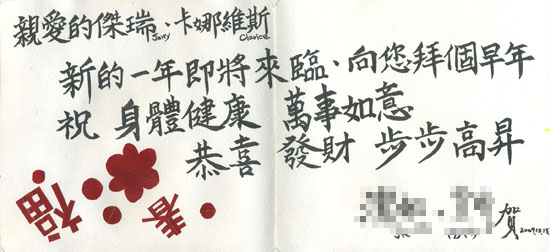 親愛的傑瑞、卡娜維斯
Jerry Clarice
新的一年即將來臨、向您拜個早年
祝 身體健康 萬事如意
恭喜 發財 步步高昇
福
春
賀